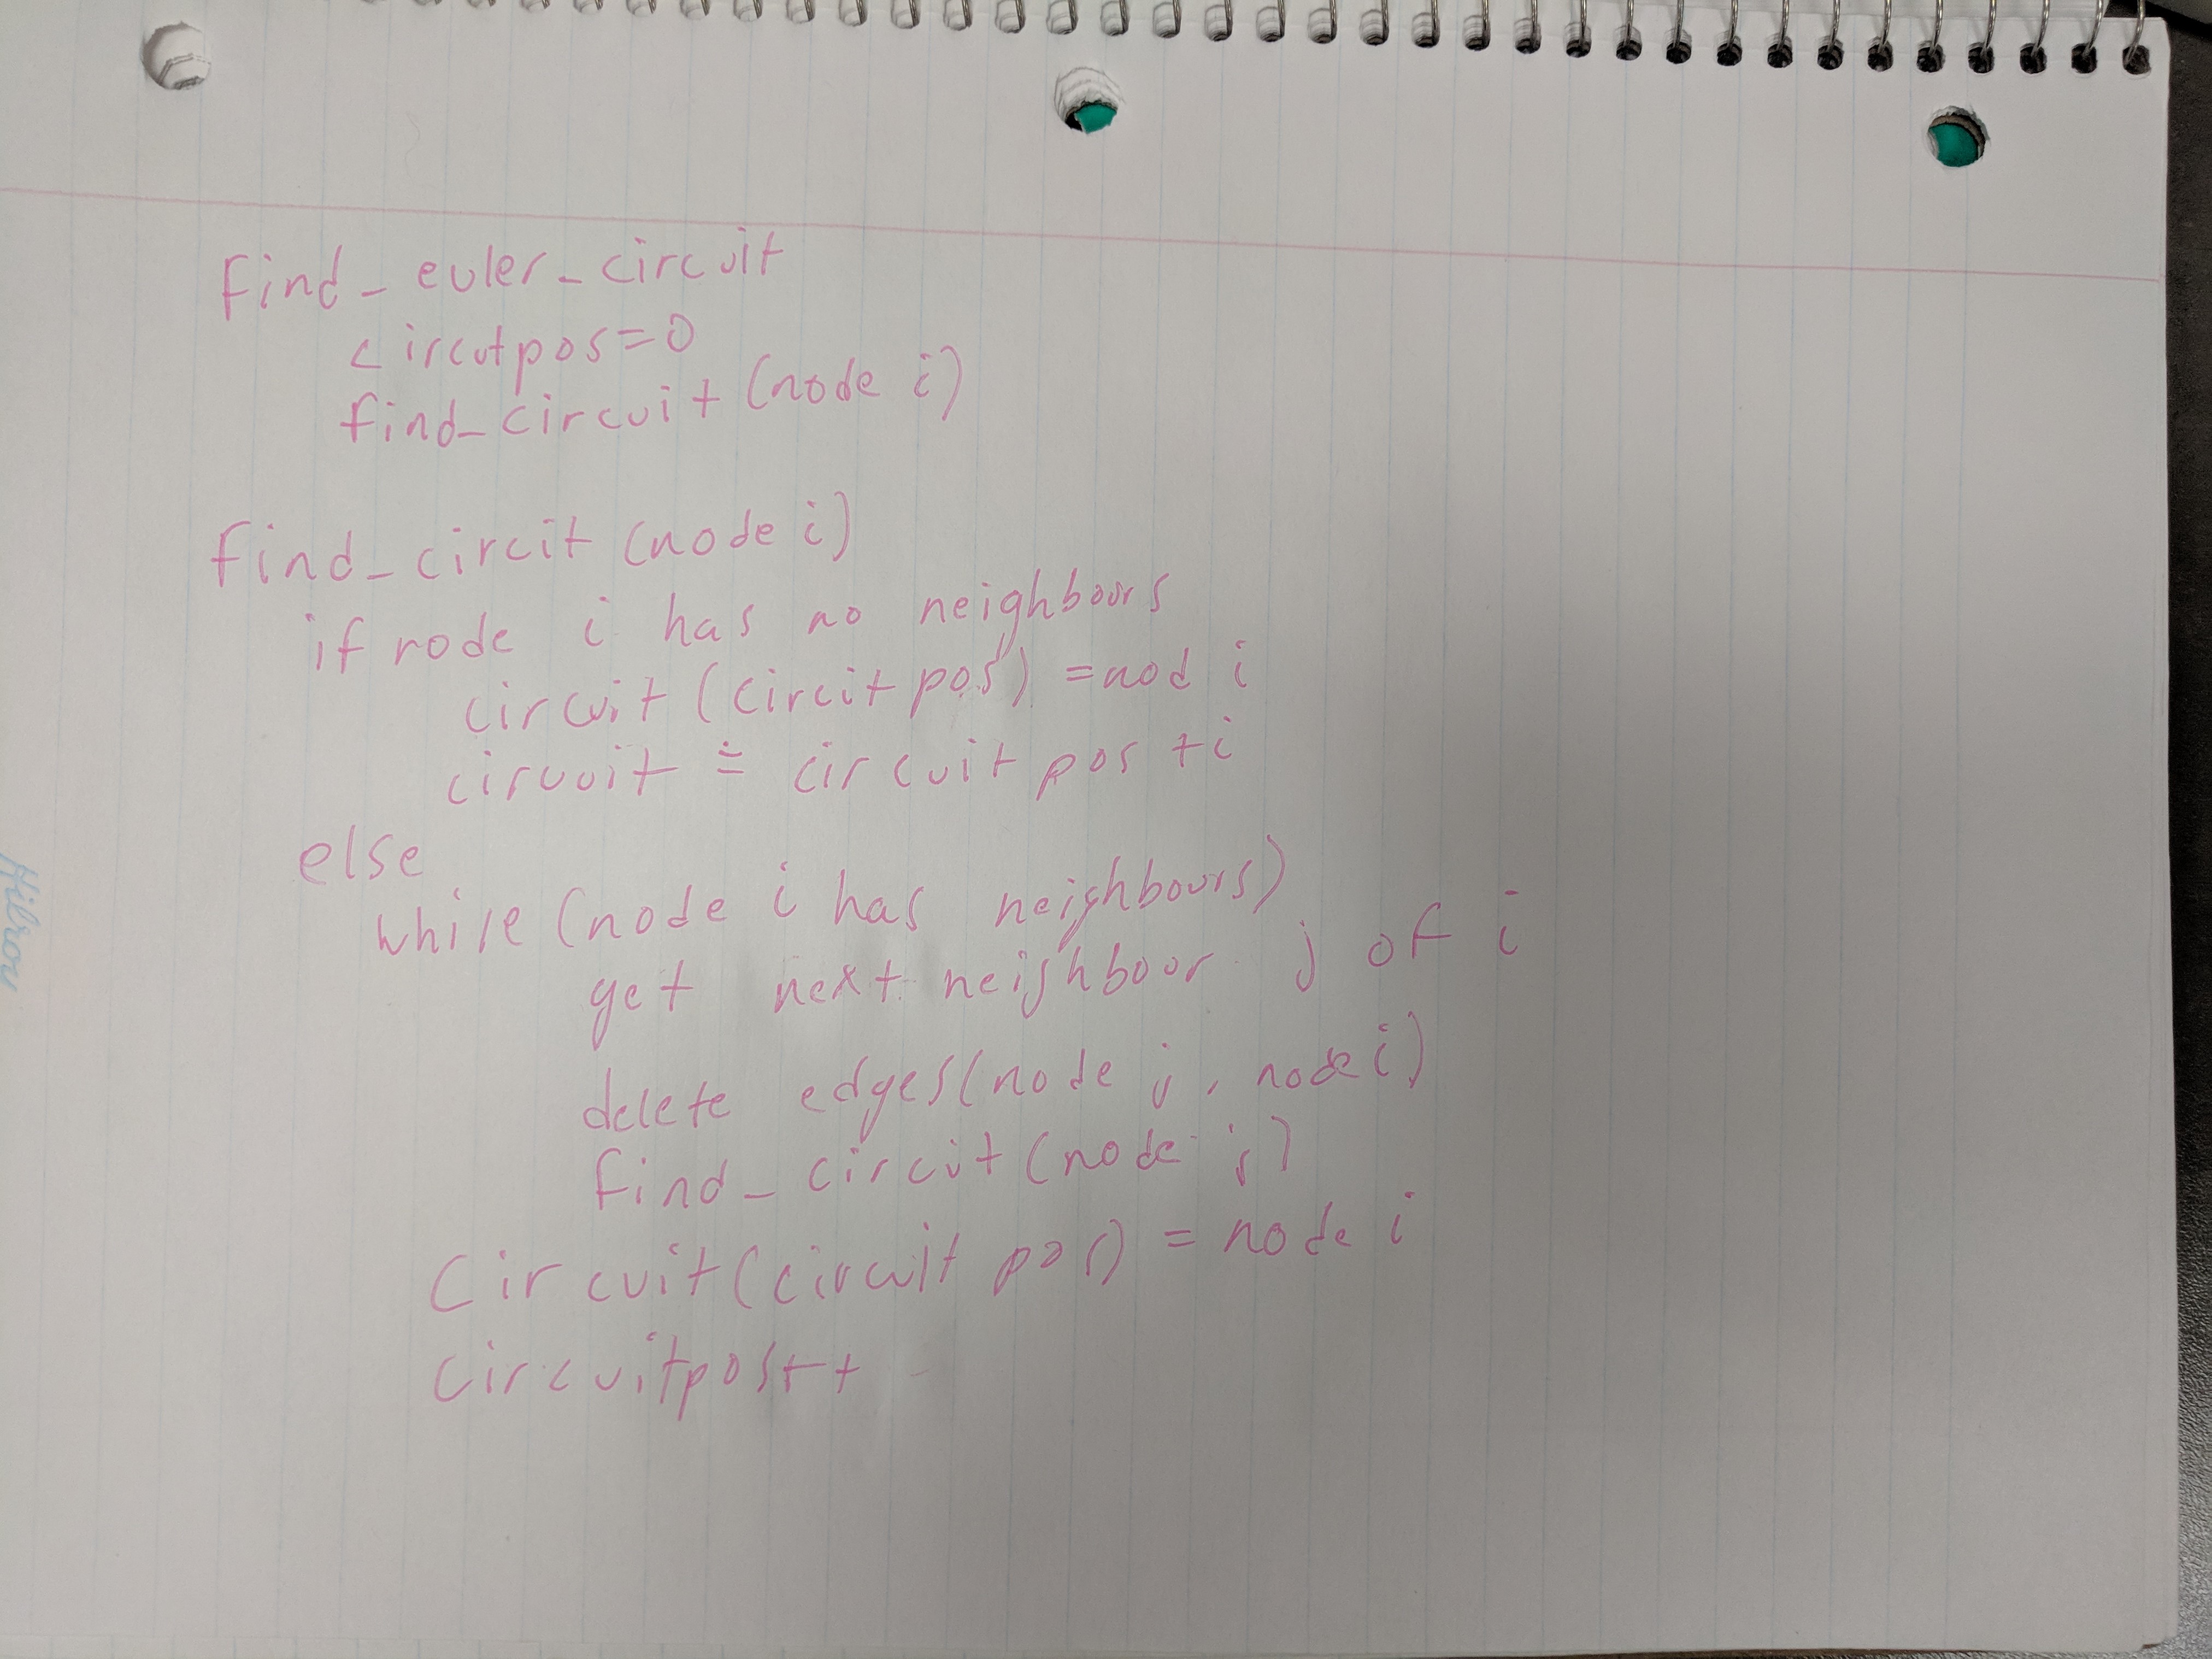 find_euler_circuit
circutpos=0
find_circuit (node i)
find_circit (node i)
if node i has no neighbours
circuit (circit pos) =nod i
circuit = circuit pos +i
else
while (node i has neighbours)
get next neighbour j of i
delete edges(node j, node i)
find_circuit (node j)
Circuit(circuit pos) = node i
circuitpos++
Hilroy